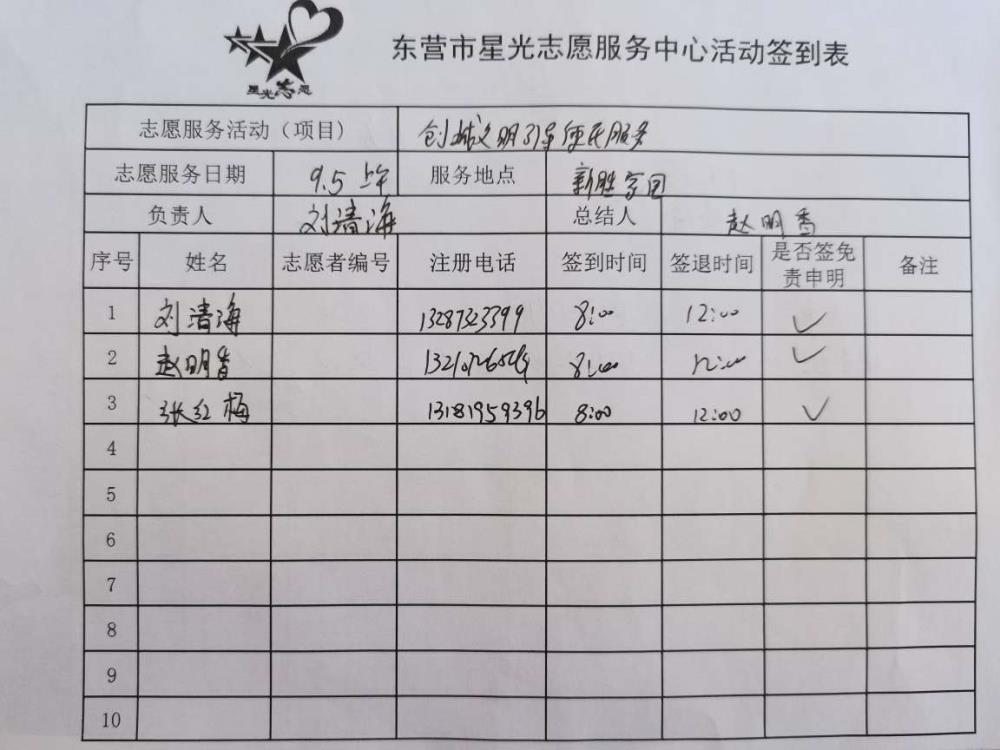 星光志愿
东营市星光志愿服务中心活动签到表
志愿服务活动（项目） 创城文明引导便民服务
志愿服务日期 9.5 上午 服务地点 新胜家园
负责人 刘清海 总结人 赵明香
序号 姓名 志愿者编号 注册电话 签到时间 签退时间 是否签免责申明 备注
1 刘清海 13287323399 8:00 12:00 ✓
2 赵明香 8:00 12:00 ✓
3 张红梅 13181959396 8:00 12:00 ✓
4
5
6
7
8
9
10